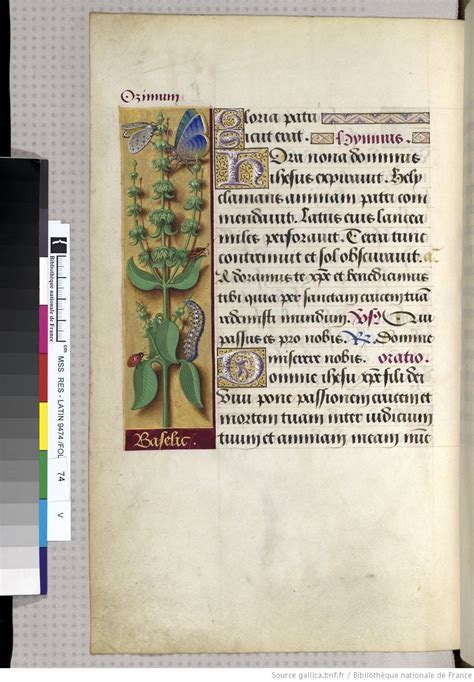 Ozimum
Gloria patri
Sicut erat. Hymnus.
Hora nona dominus
ihesus expiravit. Hely
clamans animam patri com
mendavit. Latus eius lancea
miles perforavit. Terra tunc
contremuit et sol obscuravit. a.
Adoramus te xpe et benedicimus
tibi quia per sanctam crucem tuam
redemisti mundum. Qui
passus es pro nobis. Domine
miserere nobis. Oratio.
Domine ihesu xpe fili dei
vivi pone passionem crucem et
mortem tuam inter iudicium
tuum et animam meam nunc
Baselic.
Bibliothèque nationale de France
cm
MSS RES - LATIN 9474 (FOL
74
V
Source gallica.bnf.fr / Bibliothèque nationale de France